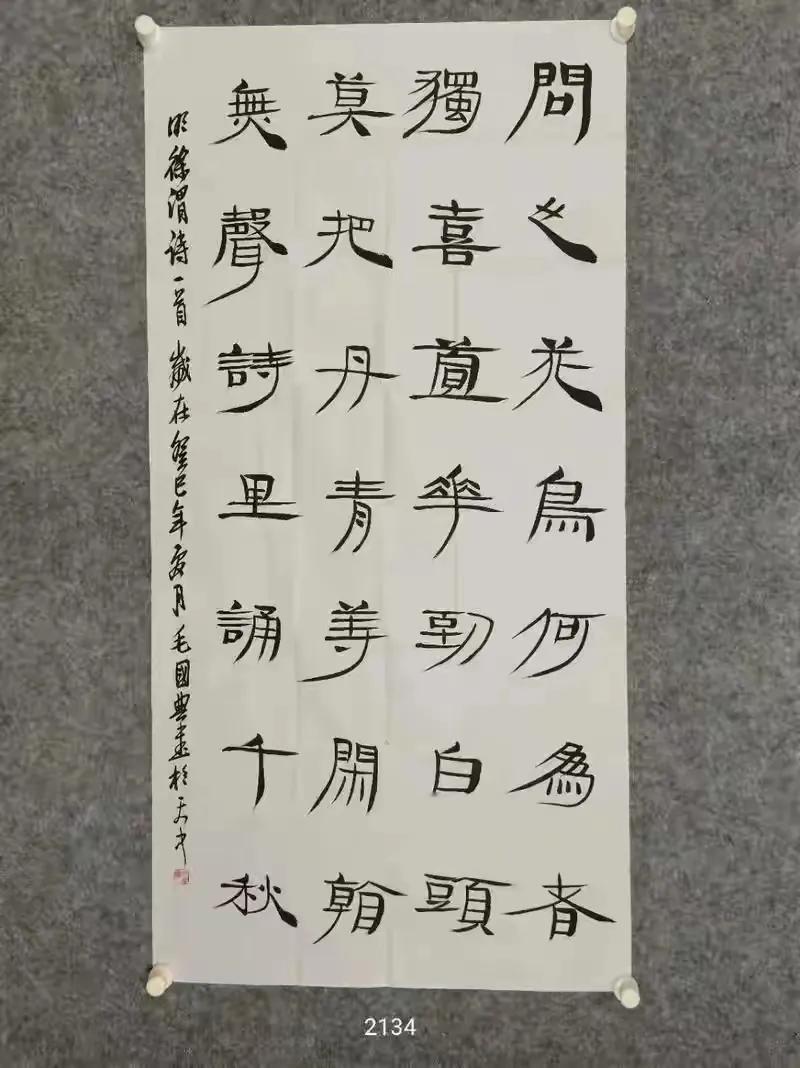 問之花鳥何為者
獨喜萱華到白頭
莫把丹青等閑看
無聲詩里誦千秋
明徐渭詩一首 歲在癸巳年夏月毛國典書於天中
2134